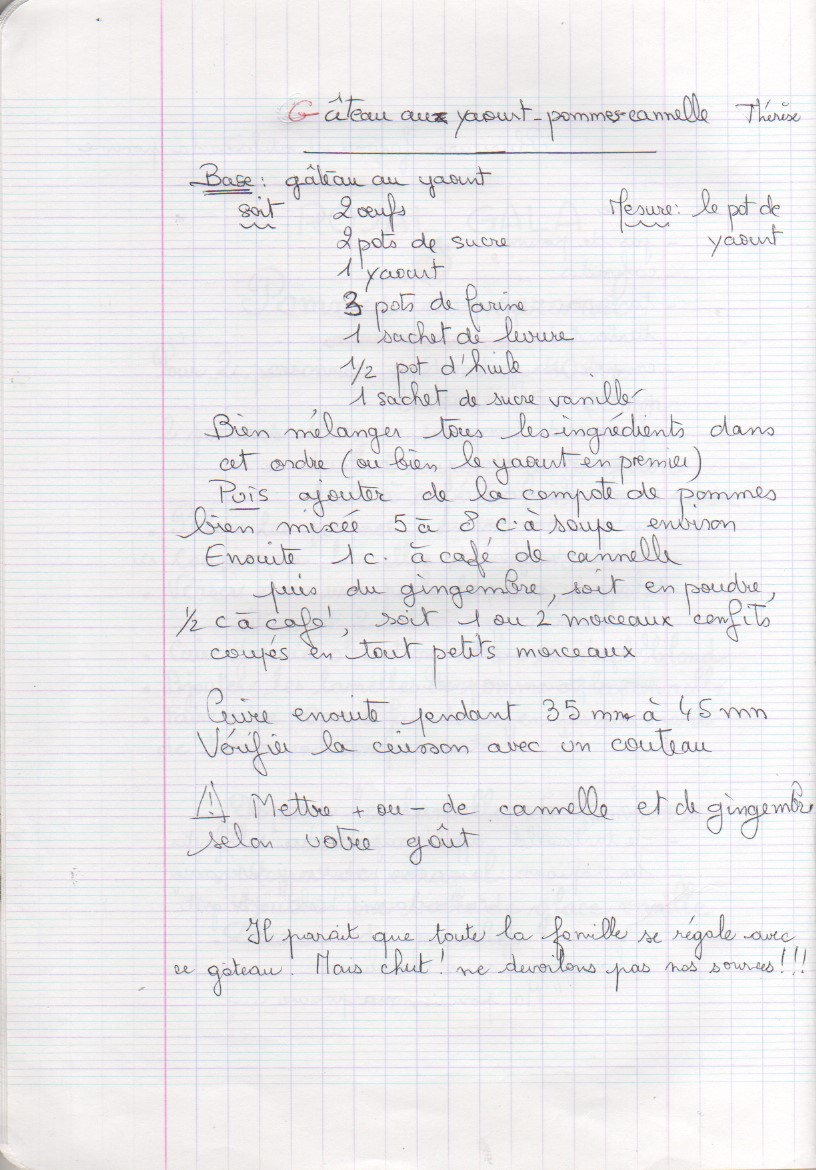 Gâteau aux yaourt-pommes-cannelle Thérèse
Base : gâteau au yaourt
soit 2 œufs Mesure : le pot de
2 pots de sucre yaourt
1 yaourt
3 pots de farine
1 sachet de levure
1/2 pot d'huile
1 sachet de sucre vanillé
Bien mélanger tous les ingrédients dans
cet ordre (ou bien le yaourt en premier)
Puis ajouter de la compote de pommes
bien mixée 5 à 8 c. à soupe environ
Ensuite 1 c. à café de cannelle
puis du gingembre, soit en poudre,
1/2 c à café, soit 1 ou 2 morceaux confits
coupés en tout petits morceaux
Cuire ensuite pendant 35 mn à 45 mn
Vérifier la cuisson avec un couteau
⚠ Mettre + ou - de cannelle et de gingembre
selon votre goût
Il parait que toute la famille se régale avec
ce gâteau ! Mais chut ! ne devoilons pas nos sources !!!